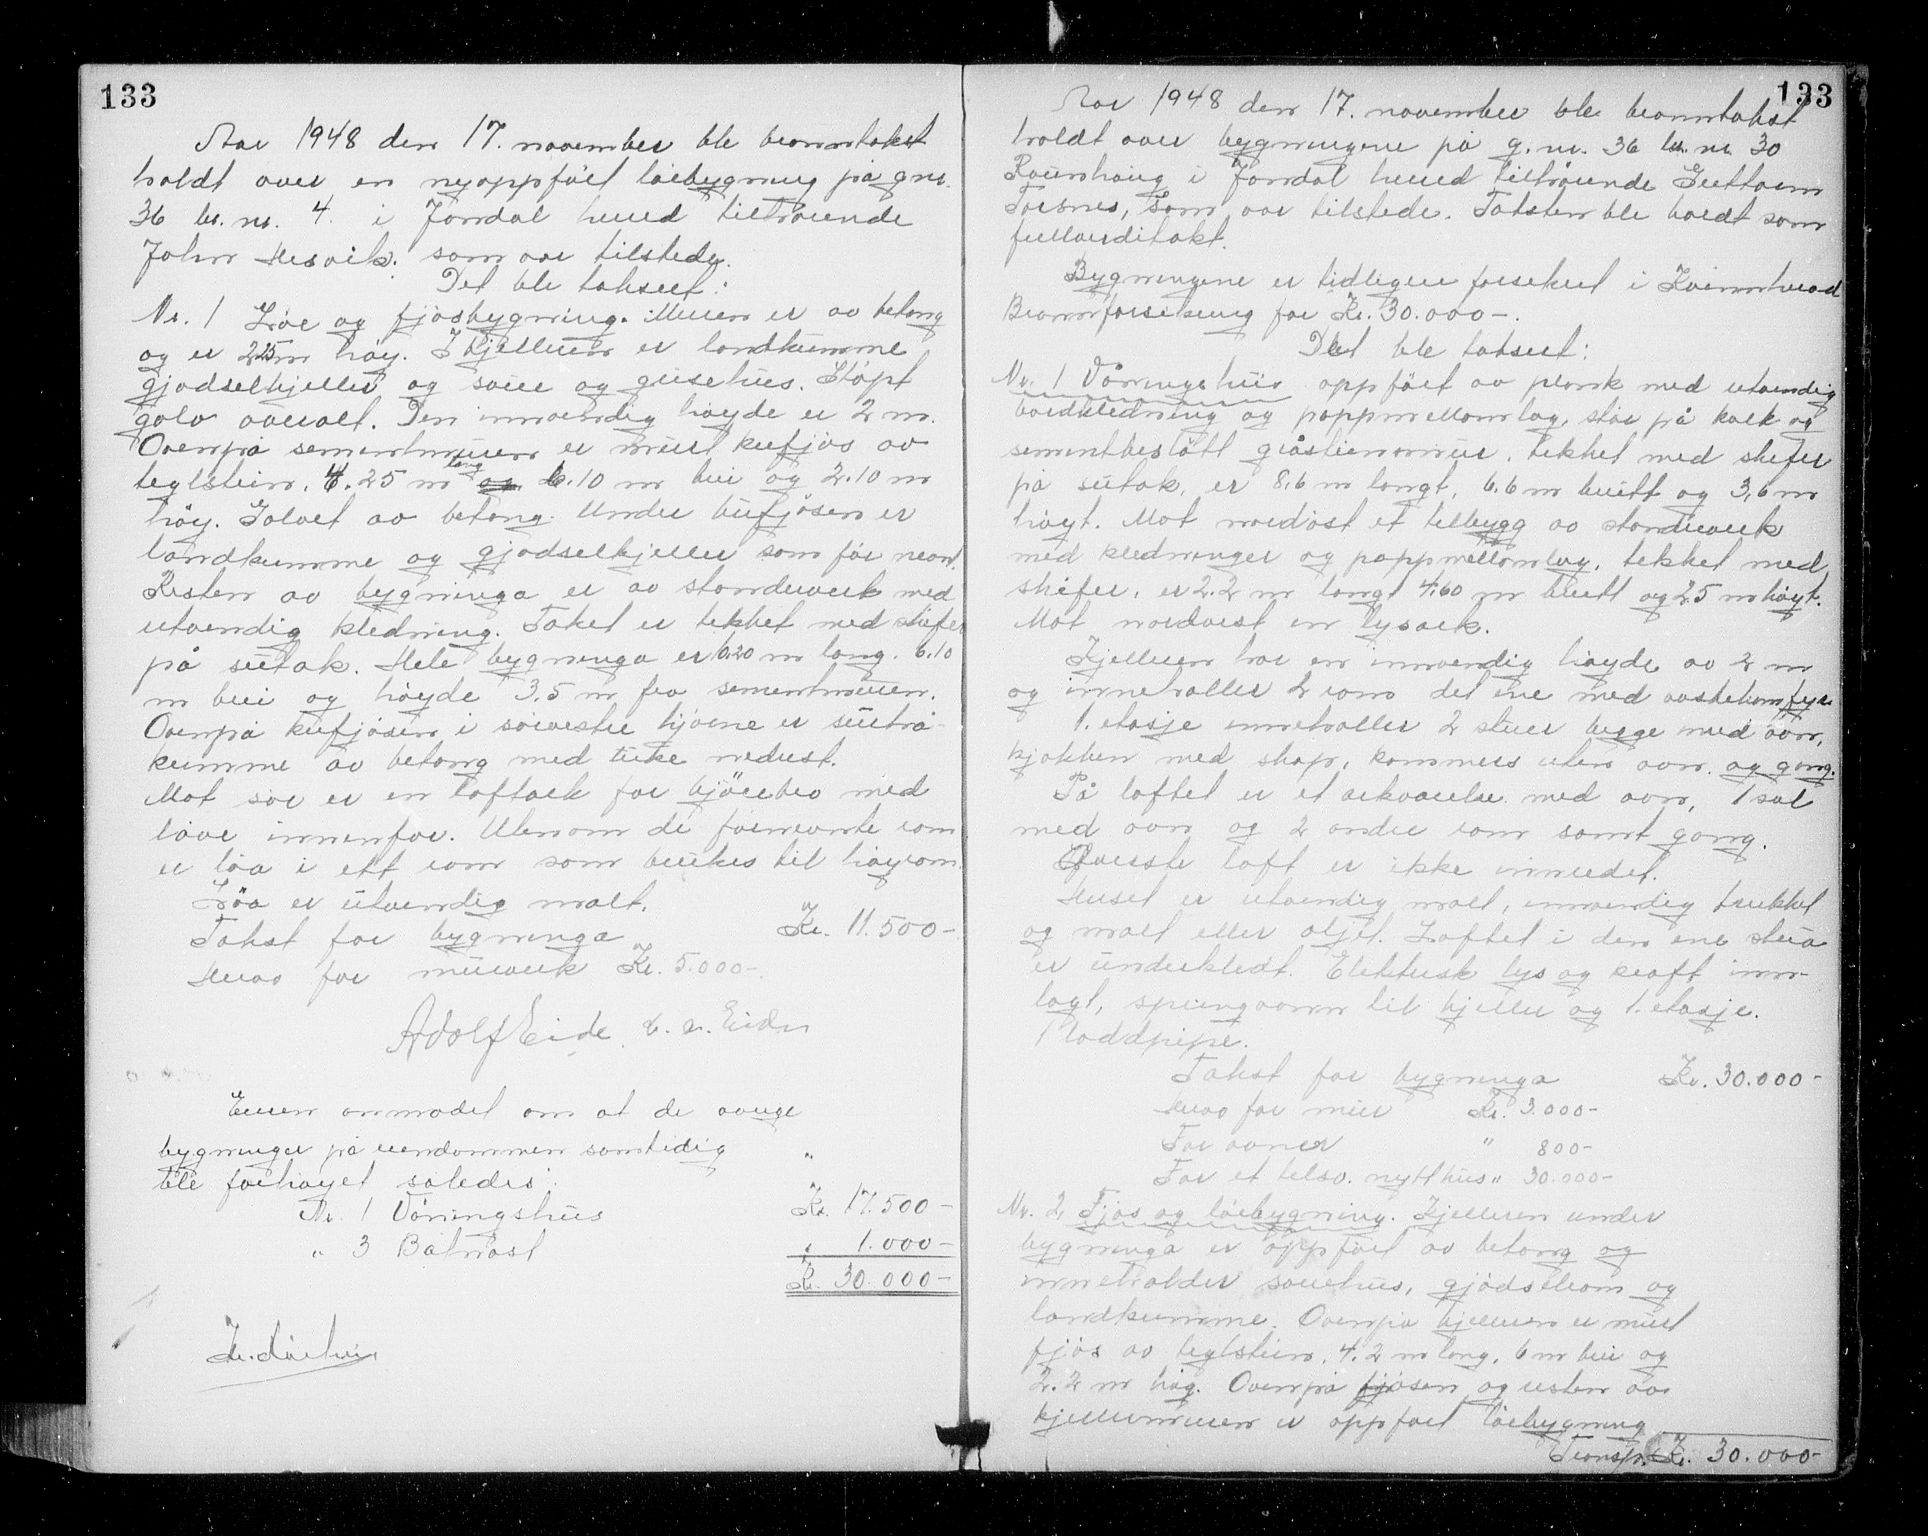 133
Aar 1948 den 17. november ble branntakst
holdt over en nyoppført løebygning på gnr.
36 br. nr. 4 i Jondal herred tilhørende
John Mesvik. som var tilstede.
Det ble taksert:
Nr. 1 Løe og fjøsbygning. Muren er av betong
og er 2.25m høy. I kjelleren er landkumme
gjødselkjeller og saue og grisehus. Støpt
golv overalt. Den innvendig høyde er 2 m.
Ovenpå sementmuren er murt kufjøs av
teglstein, 4.25 m lang og 6.10 m brei og 2.10 m
høy. Golvet av betong. Under kufjøsen er
landkumme og gjødselkjeller som før nevnt.
Resten av bygninga er av standerverk med
utvendig kledning. Taket er tekket med skifer
på sutak. Hele bygninga er 10.20 m lang. 6.10
m brei og høyde 3.5 m fra sementmuren.
Ovenpå kufjøsen i sørvestre hjørne er surhå-
kumme av betong med luke nederst.
Mot sør er en loftark for kjørebro med
løve innenfor. Utenom de førnevnte rom
er løa i ett rom som brukes til høyrom.
Løa er utvendig malt.
Takst for bygninga Kr. 11.500-
Herav for murverk Kr. 5.000-.
Adolf Eide.
Eieren anmodet om at de øvrige
bygninger på eiendommen samtidig "
ble forhøyet således:
Nr. 1 Våningshus Kr. 17.500-
" 3 Båtnøst " 1.000-
Kr. 30.000-
133
Aar 1948 den 17. november ble branntakst
holdt over bygningene på g.nr. 36 br. nr. 30
Raunhaug i Jondal herred tilhørende Guttorm
Torsnes, som var tilstede. Taksten ble holdt som
fullverditakst.
Bygningene er tidligere forsikret i Kvinnherad
Brannforsikring for Kr. 30.000-.
Det ble taksert:
Nr. 1 Våningshus oppført av plank med utvendig
bordkledning og pappmellomlag, står på kalk og
sementbestøtt gråsteinsmur, tekket med skifer
på sutak, er 8,6 m langt, 6.6 m breitt og 3,6 m
høyt. Mot nordøst et tilbygg av standerverk
med kledninger og pappmellomlag, tekket med
skifer, er 2.2 m langt 4,60 m breitt og 2.5 m høyt.
Mot nordvest en lysark.
Kjelleren har en innvendig høyde av 2 m
og inneholder 2 rom det ene med vaskekomfyr
1. etasje inneholder 2 stuer begge med ovn,
kjøkken med skap, kammers uten ovn og gang.
På loftet er et arkværelse med ovn, 1 sal
med ovn og 2 andre rom samt gang.
Øverste loft er ikke innredet.
Huset er utvendig malt, innvendig trukket
og malt eller oljet. Loftet i den ene stua
er underkledt. Elektrisk lys og kraft inn-
lagt, springvann til kjeller og 1. etasje.
1 loddpipe.
Takst for bygninga Kr. 30.000-
Herav for mur Kr. 3.000-
For ovner " 800-
For et tilsv. nytt hus " 30.000-
Nr. 2 Fjøs og løebygning. Kjelleren under
bygninga er oppført av betong og
inneholder sauehus, gjødselrom og
landkumme. Ovenpå kjelleren er murt
fjøs av teglstein, 4.2 m lang, 6 m brei og
2.2 m høg. Ovenpå fjøsen og resten av
kjellermuren er oppført løebygning
Transp. Kr. 30.000-